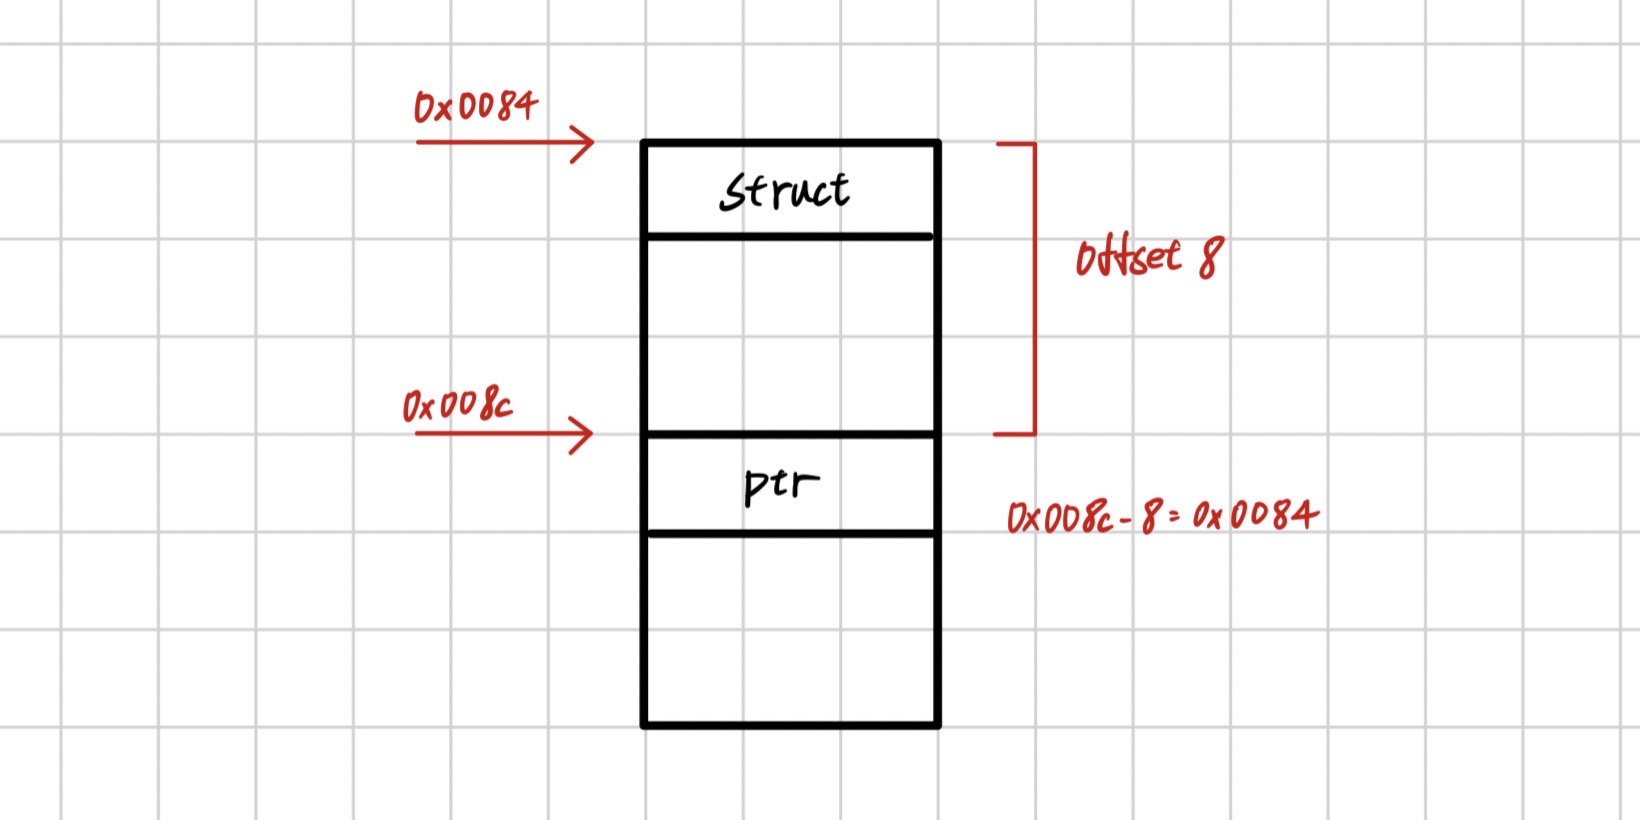 0x0084
struct
offset 8
0x008c
ptr
0x008c - 8 = 0x0084